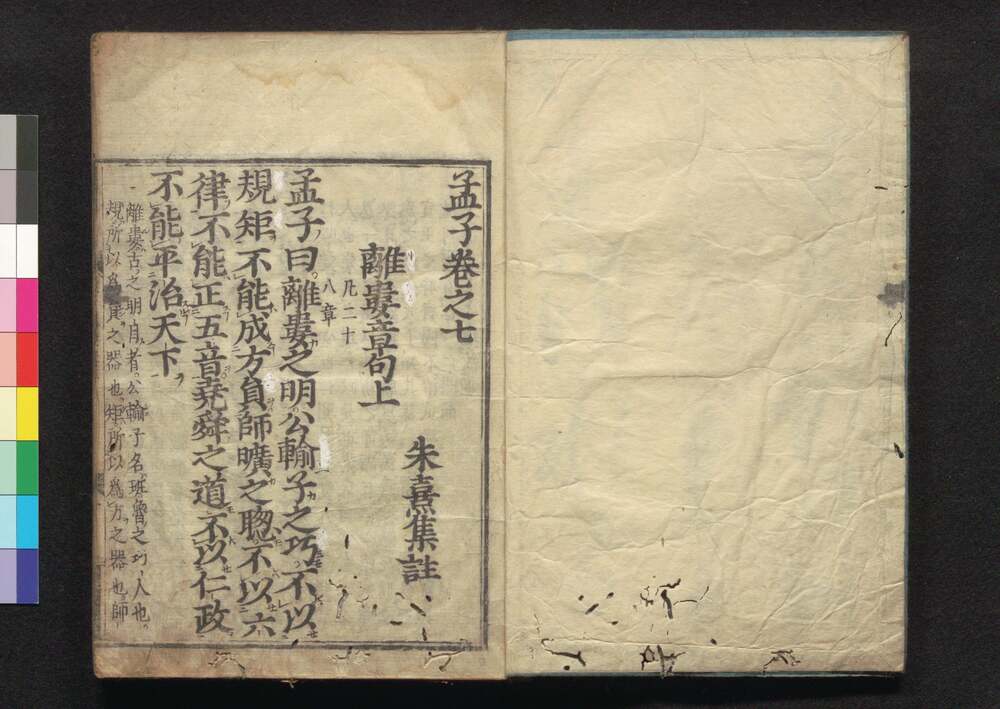 孟子卷之七
朱熹集註
離婁章句上
凡二十
八章
孟子曰離婁之明公輸子之巧不以
規矩不能成方負師曠之聰不以六
律不能正五音堯舜之道不以仁政
不能平治天下
離婁古之明目者公輸子名班魯之巧人也
規所以爲員之器也矩所以爲方之器也師